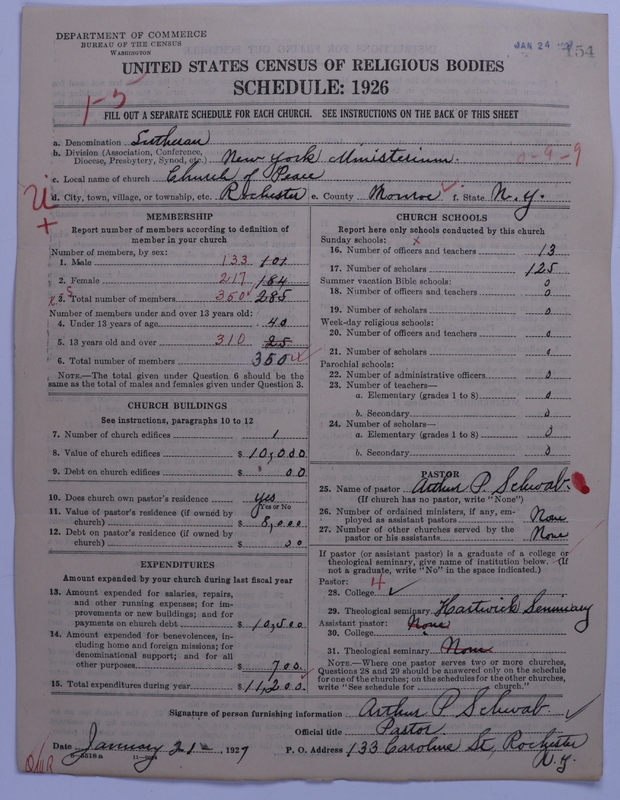 DEPARTMENT OF COMMERCE
BUREAU OF THE CENSUS
WASHINGTON
JAN 24
154
UNITED STATES CENSUS OF RELIGIOUS BODIES
SCHEDULE: 1926
1-5
FILL OUT A SEPARATE SCHEDULE FOR EACH CHURCH. SEE INSTRUCTIONS ON THE BACK OF THIS SHEET
a. Denomination Lutheran
b. Division (Association, Conference, Diocese, Presbytery, Synod, etc.) New York Ministerium.
c. Local name of church Church of Peace
d. City, town, village, or township, etc. Rochester e. County Monroe f. State N.Y.
MEMBERSHIP
Report number of members according to definition of
member in your church
Number of members, by sex:
1. Male 133 101
2. Female 217 184
3. Total number of members 350 285
Number of members under and over 13 years old:
4. Under 13 years of age 40
5. 13 years old and over 310 25
6. Total number of members 350
NOTE.—The total given under Question 6 should be
same as the total of males and females given under Question 3.
CHURCH BUILDINGS
See instructions, paragraphs 10 to 12
7. Number of church edifices 1
8. Value of church edifices $ 10,000
9. Debt on church edifices $ 00
10. Does church own pastor's residence yes
Yes or No
11. Value of pastor's residence (if owned by
church) $ 8,000
12. Debt on pastor's residence (if owned by
church) $ 00
EXPENDITURES
Amount expended by your church during last fiscal year
13. Amount expended for salaries, repairs,
and other running expenses; for im-
provements or new buildings; and for
payments on church debt $ 10,500
14. Amount expended for benevolences, in-
cluding home and foreign missions; for
denominational support; and for all
other purposes $ 700.
15. Total expenditures during year $ 11,200.
CHURCH SCHOOLS
Report here only schools conducted by this church
Sunday schools: x
16. Number of officers and teachers 13
17. Number of scholars 125
Summer vacation Bible schools:
18. Number of officers and teachers 0
19. Number of scholars 0
Week-day religious schools:
20. Number of officers and teachers 0
21. Number of scholars 0
Parochial schools:
22. Number of administrative officers 0
23. Number of teachers—
a. Elementary (grades 1 to 8) 0
b. Secondary 0
24. Number of scholars—
a. Elementary (grades 1 to 8) 0
b. Secondary 0
PASTOR
25. Name of pastor Arthur P. Schwab.
(If church has no pastor, write "None")
26. Number of ordained ministers, if any, em-
ployed as assistant pastors None
27. Number of other churches served by the
pastor or his assistants None
If pastor (or assistant pastor) is a graduate of a college or
theological seminary, give name of institution below. (If
not a graduate, write "No" in the space indicated.)
Pastor: 4
28. College ✓
29. Theological seminary Hartwick Seminary
Assistant pastor: None
30. College
31. Theological seminary None
NOTE.—Where one pastor serves two or more churches,
Questions 28 and 29 should be answered only on the schedule
for one of the churches; on the schedules for the other churches,
write "See schedule for church."
Signature of person furnishing information Arthur P Schwab
Official title Pastor
Date January 21 1927 P. O. Address 133 Caroline St, Rochester
N.Y.